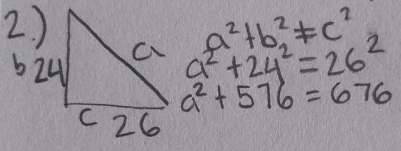 2.)
b 24
a
c 26
a²+b²≠c²
a²+24²=26²
a²+576=676